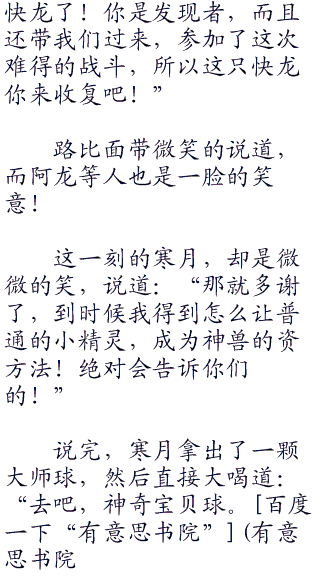 快龙了！你是发现者，而且
还带我们过来，参加了这次
难得的战斗，所以这只快龙
你来收复吧！”
路比面带微笑的说道，
而阿龙等人也是一脸的笑
意！
这一刻的寒月，却是微
微的笑，说道：“那就多谢
了，到时候我得到怎么让普
通的小精灵，成为神兽的资
方法！绝对会告诉你们
的！”
说完，寒月拿出了一颗
大师球，然后直接大喝道：
“去吧，神奇宝贝球。[百度
一下“有意思书院”] (有意
思书院